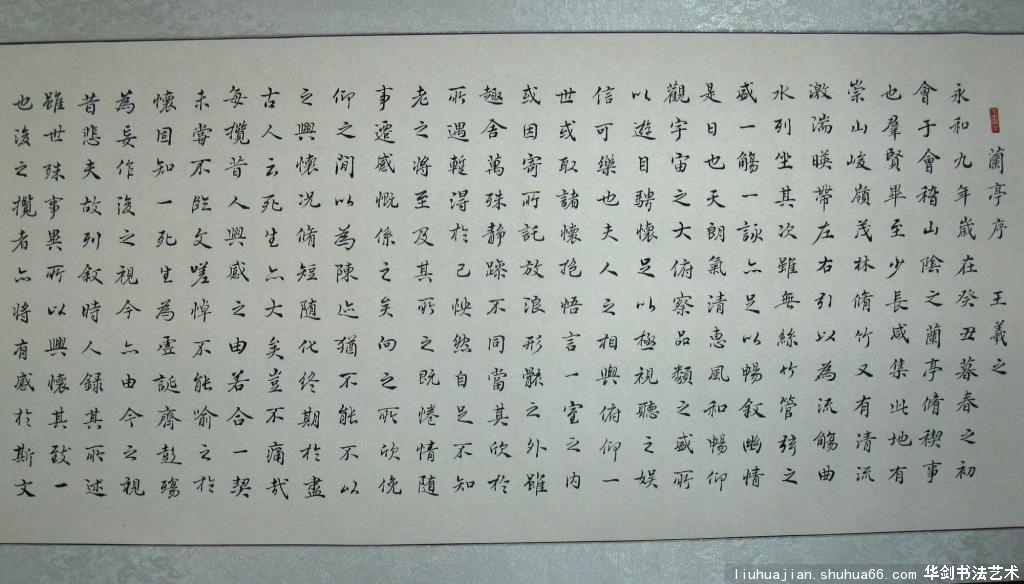 蘭亭序 王羲之
永和九年歲在癸丑暮春之初
會于會稽山陰之蘭亭脩禊事
也羣賢畢至少長咸集此地有
崇山峻嶺茂林脩竹又有清流
激湍暎帶左右引以為流觴曲
水列坐其次雖無絲竹管弦之
盛一觴一詠亦足以暢敘幽情
是日也天朗氣清惠風和暢仰
觀宇宙之大俯察品類之盛所
以遊目騁懷足以極視聽之娛
信可樂也夫人之相與俯仰一
世或取諸懷抱悟言一室之內
或因寄所託放浪形骸之外雖
趣舍萬殊静躁不同當其欣於
所遇蹔得於己怏然自足不知
老之將至及其所之既惓情随
事遷感慨係之矣向之所欣俛
仰之間以為陳迹猶不能不以
之興懷况脩短随化終期於盡
古人云死生亦大矣豈不痛哉
每攬昔人興感之由若合一契
未嘗不臨文嗟悼不能喻之於
懷固知一死生為虛誕齊彭殤
為妄作後之視今亦由今之視
昔悲夫故列敘時人錄其所述
雖世殊事異所以興懷其致一
也後之攬者亦將有感於斯文
liuhuajian.shuhua66.com 华剑书法艺术